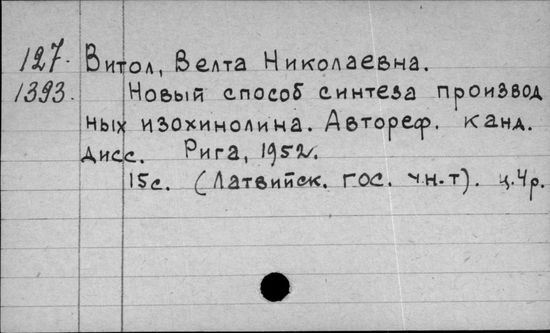 127. Витол, Велта Николаевна.
1393. Новый способ синтеза производ
ных изохинолина. Автореф. канд.
дисс. Рига, 1952.
15с. (Латвийск. гос. ун-т). ц.4р.